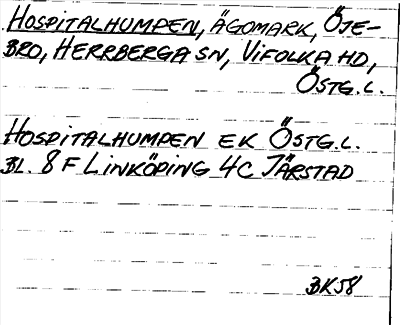 HOSPITALHUMPEN, ÄGOMARK, ÖJE-
BRO, HERRBERGA SN, VIFOLKA HD,
ÖSTG.L.
HOSPITALHUMPEN EK ÖSTG.L.
BL. 8 F LINKÖPING 4C JÄRSTAD
BK58